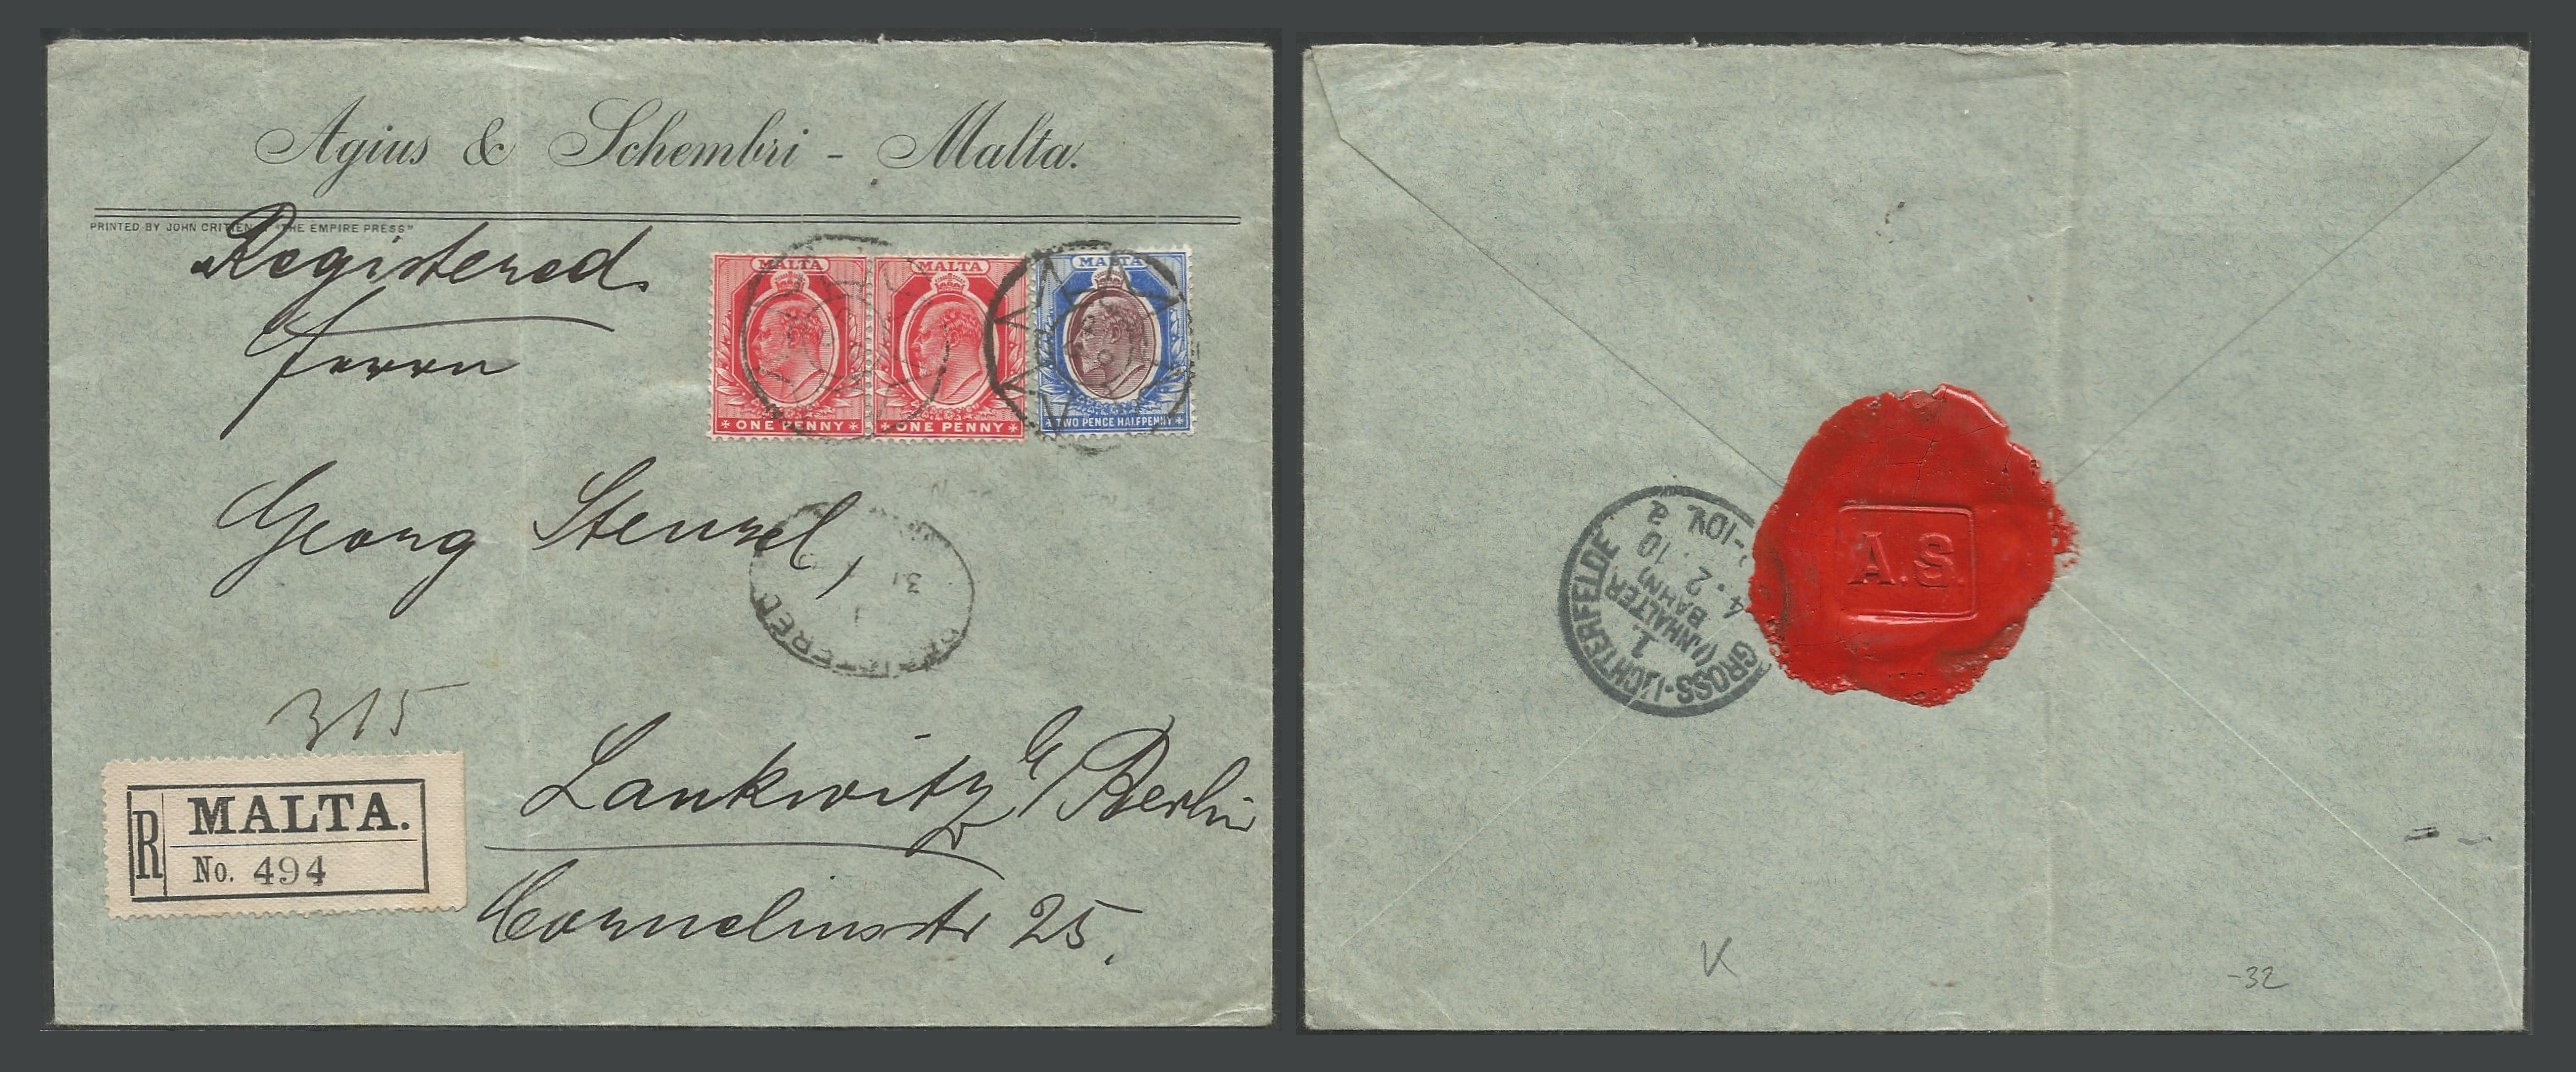 Agius & Schembri - Malta.
PRINTED BY JOHN CRITIEN "THE EMPIRE PRESS"
Registered
Herrn
MALTA
MALTA
MALTA
ONE PENNY
ONE PENNY
TWO PENCE HALFPENNY
Georg Stenzel,
31
REGISTERED
315
Lankwitz G/Berlin
Cornelinsstr 25.
R
MALTA.
No. 494
GROSS-LICHTERFELDE
1.
(ANHALTER
BAHN)
4.2.10
-10V. a
A.S.
K
-32